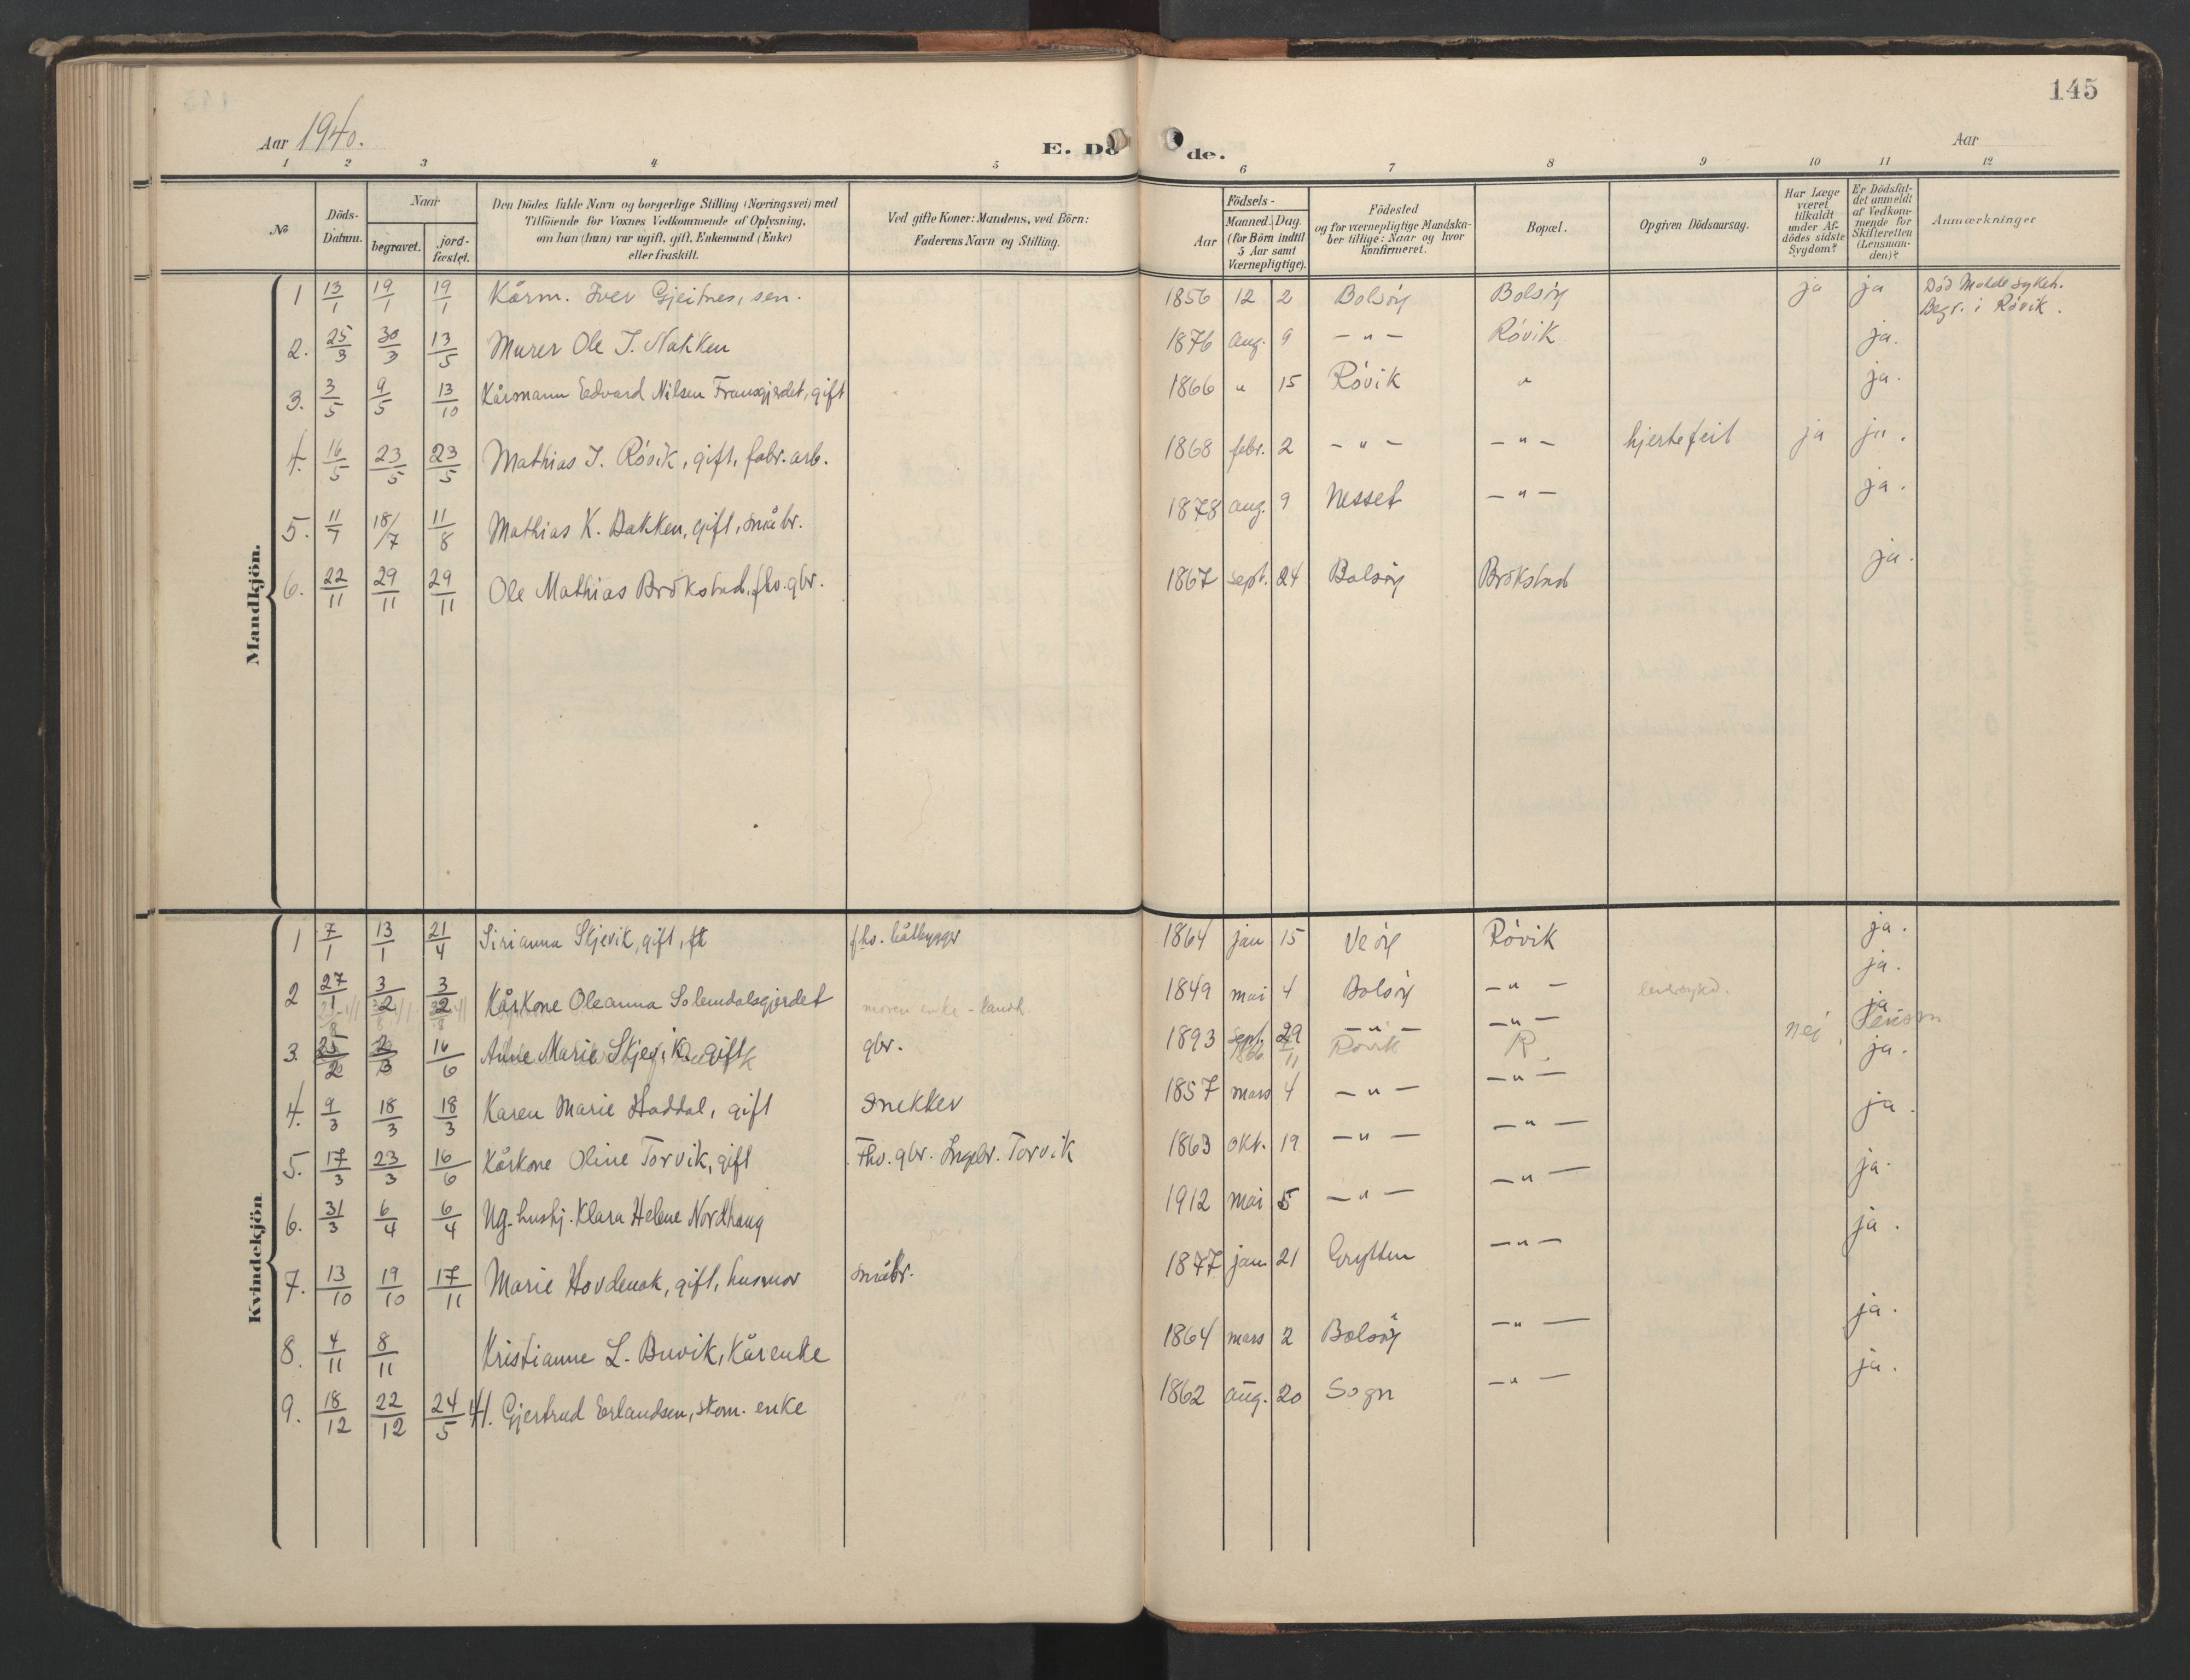 145
Aar 1940.
E. Dö de.
Aar
1 2 3 4 5 6 7 8 9 10 11 12
No
Döds-Datum.
Naar
begravet.
jord-fæstet.
Den Dödes fulde Navn og borgerlige Stilling (Næringsvei) med
Tilföiende for Voxnes Vedkommende af Oplysning,
om han (hun) var ugift, gift, Enkemand (Enke)
eller fraskilt.
Ved gifte Koner: Mandens, ved Börn:
Faderens Navn og Stilling.
Födsels-
Aar
Maaned. Dag.
(for Börn indtil
5 Aar samt
Værnepligtige).
Födested
og for værnepligtige Mandska-
ber tillige: Naar og hvor
konfirmeret.
Bopæl.
Opgiven Dödsaarsag.
Har Læge
været
tilkaldt
under Af-
dödes sidste
Sygdom?
Er Dödsfal-
det anmeldt
af Vedkom-
mende for
Skifteretten
(Lensman-
den)?
Anmærkninger
Mandkjön.
1 13/1 19/1 19/1 Kårm. Iver Gjeitnes, sen. 1856 12 2 Bolsöy Bolsöy ja ja Död Molde sykeh.
Begr. i Rövik.
2. 25/3 30/3 13/5 Murer Ole J. Nakken 1876 aug. 9 - " - Rövik ja.
3. 3/5 9/5 13/10 Kårmann Edvard Nilsen Fransgjerdet, gift 1866 " 15 Rövik " ja.
4. 16/5 23/5 23/5 Mathias J. Rövik, gift, fabr. arb. 1868 febr. 2 - " - - " - hjertefeil ja ja.
5. 11/7 18/7 11/8 Mathias K. Bakken, gift, småbr. 1878 aug. 9 Nesset - " - ja.
6. 22/11 29/11 29/11 Ole Mathias Brökstad, fhv. gbr. 1867 sept. 24 Bolsöy Brökstad ja.
Kvindekjön
1 7/1 13/1 21/4 Sirianna Skjevik, gift, fhv. båtbygger 1864 jan 15 Veöy Rövik ja.
2 27/1 3/2 3/2 Kårkone Oleanna Solemdalsgjerdet moren enke - 1849 mai 4 Bolsöy - " - ja.
3. 25/2 2/3 16/6 Anne Marie Skjevik, gift gbr. 1893 sept. 29 - " - - " - nej ja
1866 11 Rövik R. ja.
4. 9/3 18/3 18/3 Karen Marie Haddal, gift Snekker 1857 mars 4 - " - - " - ja.
5. 17/3 23/3 16/6 Kårkone Oline Torvik, gift Fhv. gbr. Ingebr. Torvik 1863 okt. 19 - " - - " - ja.
6. 31/3 6/4 6/4 Ug. hushj. Klara Helene Nordhaug 1912 mai 5 - " - - " - ja.
7. 13/10 19/10 17/11 Marie Hovdenak, gift, husmor småbr. 1877 jan 21 Grytten - " - ja.
8. 4/11 8/11 Kristianne L. Buvik, Kårenke 1864 mars 2 Bolsöy - " - ja.
9. 18/12 22/12 24/5 41. Gjertrud Erlandsen, skom. enke 1862 aug. 20 Sogn - " -